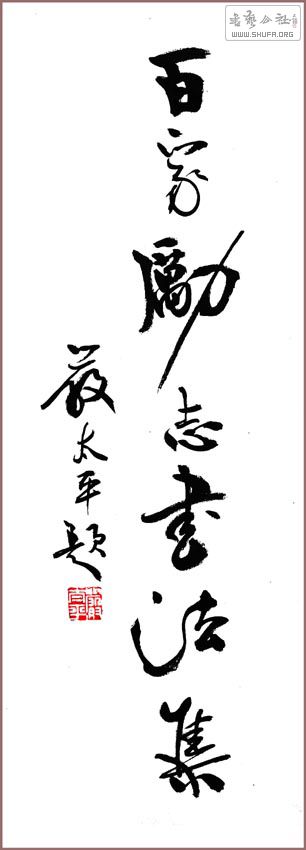 書藝公社
WWW.SHUFA.ORG
百家勵志書法集
嚴太平題